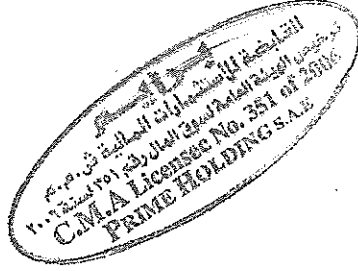 برايم
القابضة للإستثمارات المالية ش.م.م
ترخيص الهيئة العامة لسوق المال رقم ٣٥١ لسنة ٢٠٠٦
C.M.A Licensee No. 351 of 2006
PRIME HOLDING S.A.E